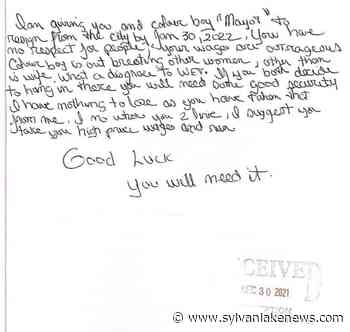 I an giving you and colour boy "Mayor" to
resign from the city by Jan 30, 2022, You have
no respect for people, your wages are outrageous
Colour boy is out breeding other women, other than
is wife, what a disgrace to WET. If you both decide
to hang in there you will need some good security
I have nothing to lose as you have taken that
from me. I no where you 2 live, I suggest you
take you high price wages and run
Good Luck
you will need it.
CEIVED
DEC 30 2021
www.sylvanlakenews.com